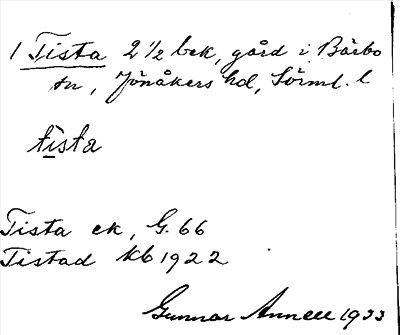 1 Tista 2 1/2 bek, gård i Bärbo
sn, Jönåkers hd, Sörml. l
tista
Tista ek, G. 66
Tistad kb 1922
Gunnar Annell 1933